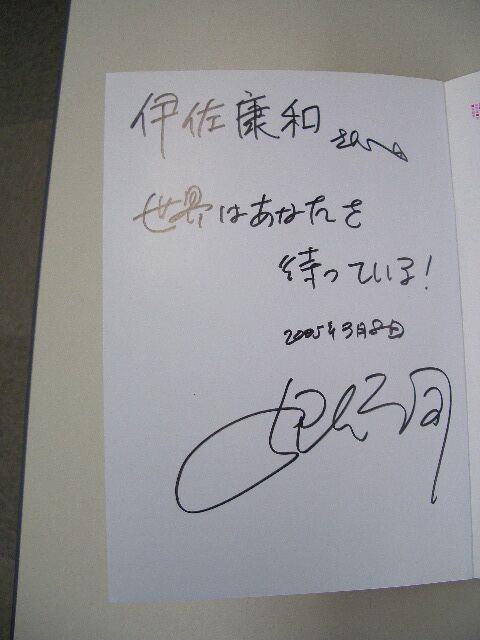 伊佐康和さん
世界はあなたを
待っている!
2005年3月8日